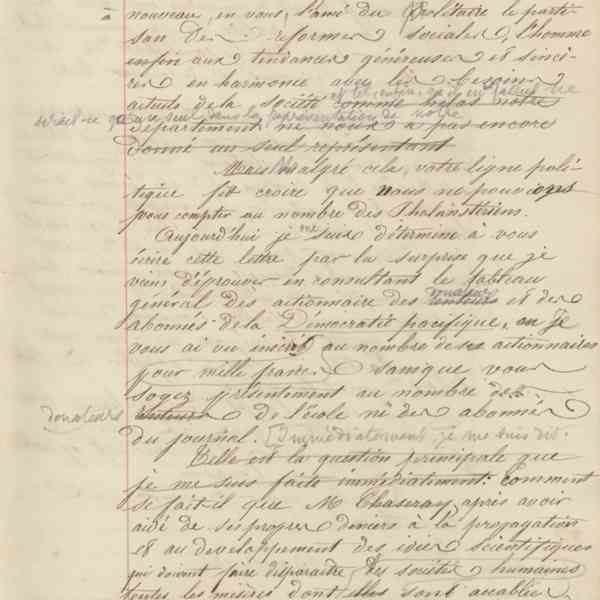 à nouveau, en vous, l'ami du prolétaire le parti-
san des réformes sociales, l'homme
enfin aux tendances généreuses et sincè-
res en harmonie avec les besoins
actuels de la société comme hélas notre
département ne nous a pas encore
donné un seul représentant
Mais Malgré cela, votre ligne poli-
tique fit croire que nous ne pouvions
vous compter au nombre des Phalanstériens.
Aujourd'hui je me suis détermine à vous
écrire cette lettre par la surprise que je
viens d'éprouver en consultant le tableau
général des actionnaire des donateurs et des
abonnés de la Démocratie pacifique, ou je
vous ai vu inscrit au nombre de ses actionnaires
pour mille francs sans que vous
soyez présentement au nombre des
donateurs de l'école ni des abonnés
du journal. [Immédiatement je me suis dit.
Telle est la question principale que
je me suis faite immédiatement: Comment
se fait-il que M. Chaseray après avoir
aidé de ses propres deniers à la propagation
et au developpement des idées scientifiques
qui doivent faire disparaitre des sociétés humaines
toutes les misères dont elles sont accablées